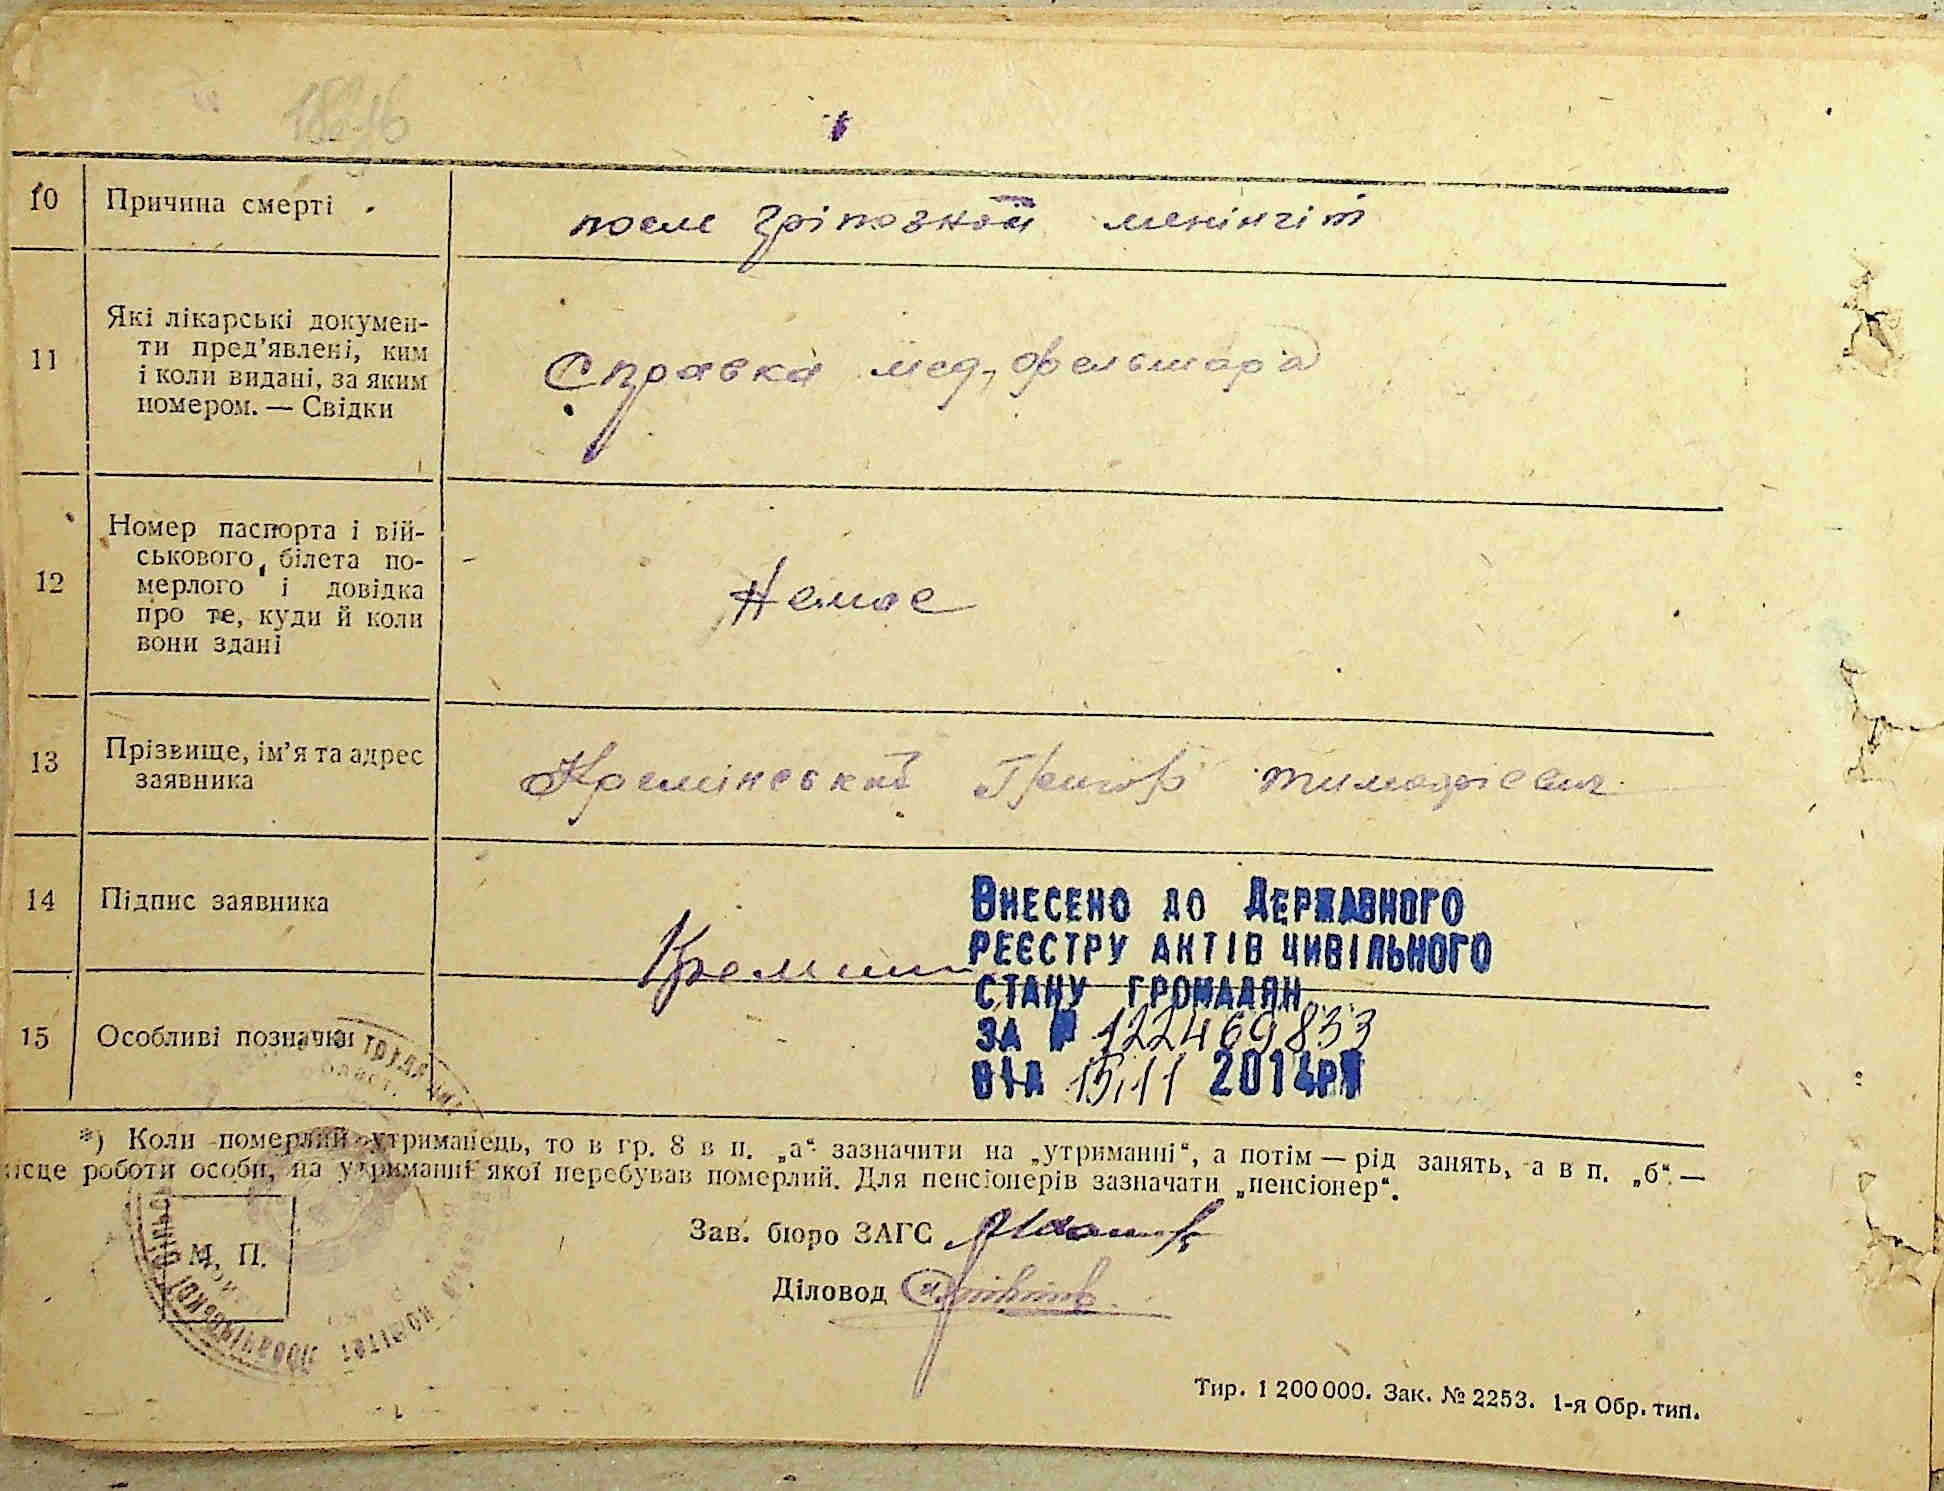 10 Причина смерті
после гріпозной менінгіт
11 Які лікарські докумен-
ти пред'явлені, ким
і коли видані, за яким
номером. — Свідки
Справка мед, фельшара
12 Номер паспорта і вій-
ськового білета по-
мерлого і довідка
про те, куди й коли
вони здані
Немає
13 Прізвище, ім'я та адрес
заявника
Кремінский Григор Тимофієвич
14 Підпис заявника
Кремин
15 Особливі позначки
Внесено до Державного
реєстру актів цивільного
стану громадян
за № 122469833
від 15.11 2014р
*) Коли померлий утриманець, то в гр. 8 в п. „а“ зазначити на „утриманні“, а потім — рід занять, а в п. „б“ —
місце роботи особи, на утриманні якої перебував померлий. Для пенсіонерів зазначати „пенсіонер“.
М. П.
Зав. бюро ЗАГС
Діловод
Тир. 1 200 000. Зак. № 2253. 1-я Обр. тип.